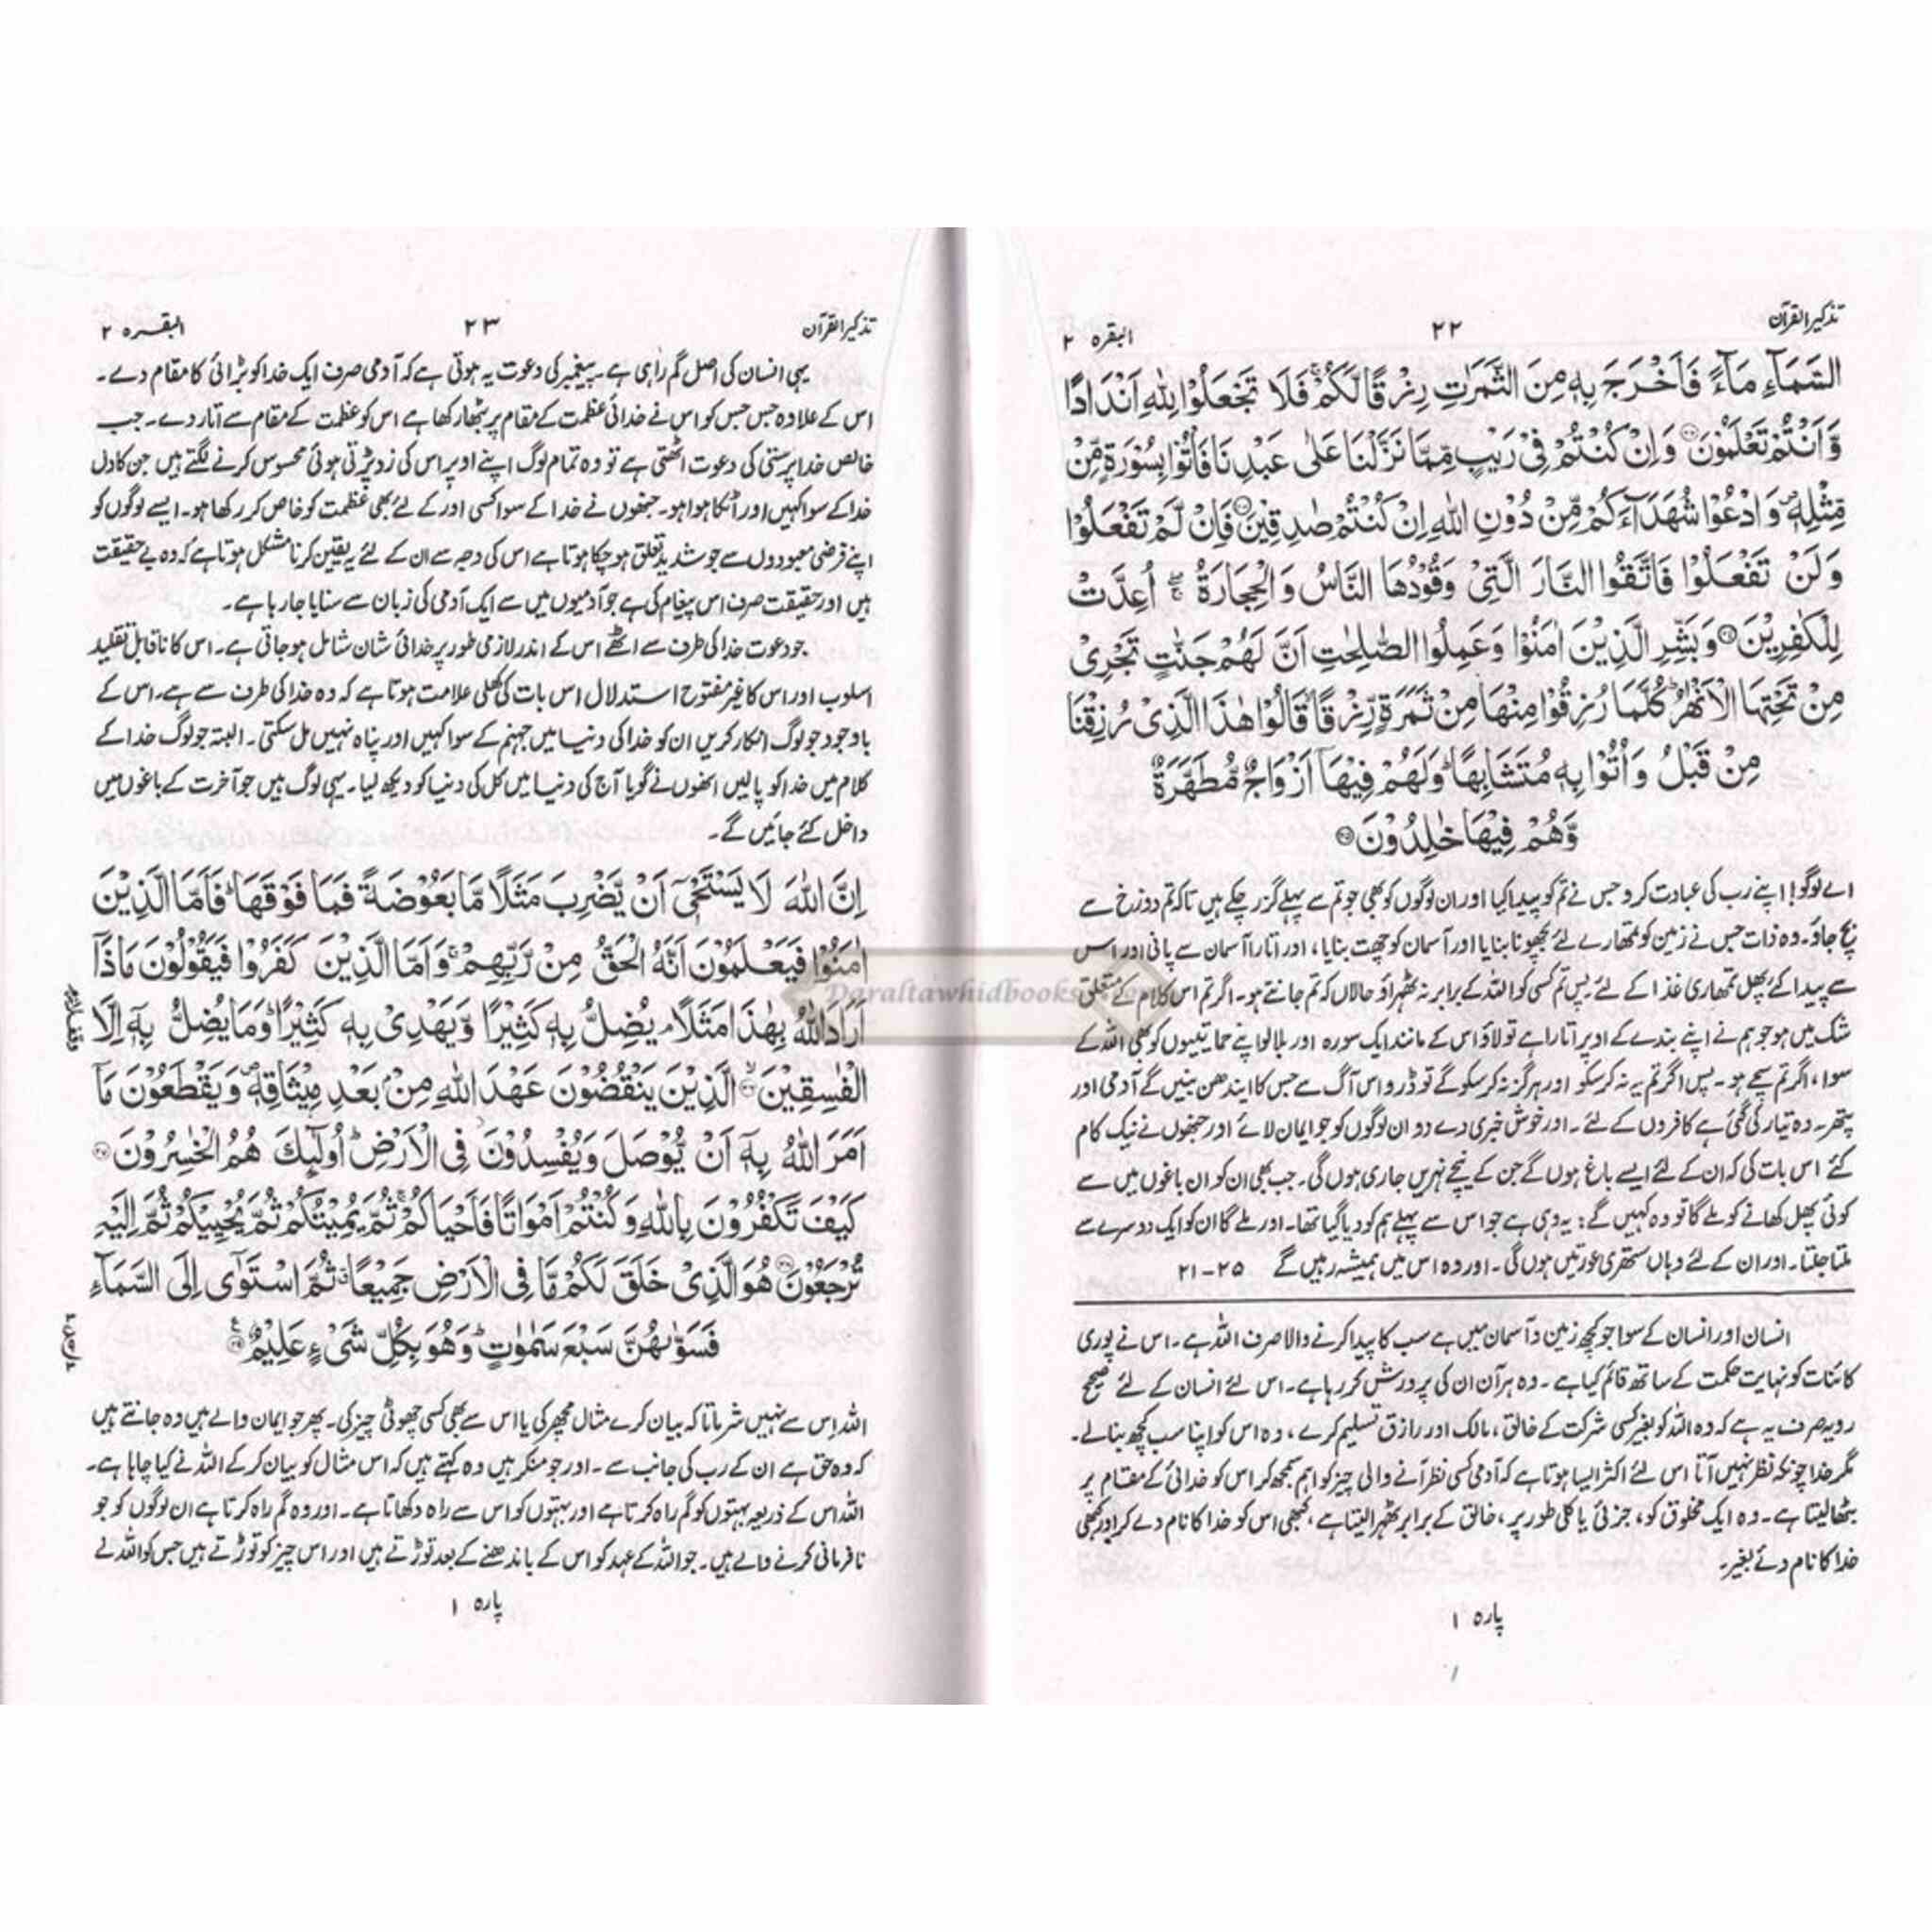 تذکیر القرآن
۲۲
البقرہ ۲
السَّمَآءِ مَآءً فَاَخْرَجَ بِهٖ مِنَ الثَّمَرٰتِ رِزْقًا لَّكُمْ ۚ فَلَا تَجْعَلُوْا لِلّٰهِ اَنْدَادًا
وَّاَنْتُمْ تَعْلَمُوْنَ ۝۲۲ وَاِنْ كُنْتُمْ فِيْ رَيْبٍ مِّمَّا نَزَّلْنَا عَلٰى عَبْدِنَا فَاْتُوْا بِسُوْرَةٍ مِّنْ
مِّثْلِهٖ ۪ وَادْعُوْا شُهَدَآءَكُمْ مِّنْ دُوْنِ اللّٰهِ اِنْ كُنْتُمْ صٰدِقِيْنَ ۝۲۳ فَاِنْ لَّمْ تَفْعَلُوْا
وَلَنْ تَفْعَلُوْا فَاتَّقُوا النَّارَ الَّتِيْ وَقُوْدُهَا النَّاسُ وَالْحِجَارَةُ ۖۚ اُعِدَّتْ
لِلْكٰفِرِيْنَ ۝۲۴ وَبَشِّرِ الَّذِيْنَ اٰمَنُوْا وَعَمِلُوا الصّٰلِحٰتِ اَنَّ لَهُمْ جَنّٰتٍ تَجْرِيْ
مِنْ تَحْتِهَا الْاَنْهٰرُ ؕ كُلَّمَا رُزِقُوْا مِنْهَا مِنْ ثَمَرَةٍ رِّزْقًا ۙ قَالُوْا هٰذَا الَّذِيْ رُزِقْنَا
مِنْ قَبْلُ وَاُتُوْا بِهٖ مُتَشَابِهًا ؕ وَلَهُمْ فِيْهَآ اَزْوَاجٌ مُّطَهَّرَةٌ
وَّهُمْ فِيْهَا خٰلِدُوْنَ ۝۲۵
اے لوگو! اپنے رب کی عبادت کرو جس نے تم کو پیدا کیا اور ان لوگوں کو بھی جو تم سے پہلے گزر چکے ہیں تاکہ تم دوزخ سے
بچ جاؤ۔ وہ ذات جس نے زمین کو تمھارے لئے بچھونا بنایا اور آسمان کو چھت بنایا، اور اتارا آسمان سے پانی اور اس
سے پیدا کئے پھل تمھاری غذا کے لئے۔ پس تم کسی کو اللہ کے برابر نہ ٹھہراؤ حالاں کہ تم جانتے ہو۔ اگر تم اس کلام کے متعلق
شک میں ہو جو ہم نے اپنے بندے کے اوپر اتارا ہے تو لاؤ اس کے مانند ایک سورہ اور بلا لو اپنے حمایتیوں کو بھی اللہ کے
سوا، اگر تم سچے ہو۔ پس اگر تم یہ نہ کرسکو اور ہرگز نہ کرسکو گے تو ڈرو اس آگ سے جس کا ایندھن بنیں گے آدمی اور
پتھر۔ وہ تیار کی گئی ہے کافروں کے لئے۔ اور خوش خبری دے دو ان لوگوں کو جو ایمان لائے اور جنھوں نے نیک کام
کئے اس بات کی کہ ان کے لئے ایسے باغ ہوں گے جن کے نیچے نہریں جاری ہوں گی۔ جب بھی ان کو ان باغوں میں سے
کوئی پھل کھانے کو ملے گا تو وہ کہیں گے: یہ وہی ہے جو اس سے پہلے ہم کو دیا گیا تھا۔ اور ملے گا ان کو ایک دوسرے سے
ملتا جلتا۔ اور ان کے لئے وہاں ستھری عورتیں ہوں گی۔ اور وہ اس میں ہمیشہ رہیں گے ۲۵-۲۱
انسان اور انسان کے سوا جو کچھ زمین و آسمان میں ہے سب کا پیدا کرنے والا صرف اللہ ہے۔ اس نے پوری
کائنات کو نہایت حکمت کے ساتھ قائم کیا ہے۔ وہ ہر آن ان کی پرورش کر رہا ہے۔ اس لئے انسان کے لئے صحیح
رویہ صرف یہ ہے کہ وہ اللہ کو بغیر کسی شرکت کے خالق، مالک اور رازق تسلیم کرے، وہ اس کو اپنا سب کچھ بنالے۔
مگر خدا چونکہ نظر نہیں آتا اس لئے اکثر ایسا ہوتا ہے کہ آدمی کسی نظر آنے والی چیز کو اہم سمجھ کر اس کو خدائی کے مقام پر
بٹھا لیتا ہے۔ وہ ایک مخلوق کو، جزئی یا کلی طور پر، خالق کے برابر ٹھہرا لیتا ہے، کبھی اس کو خدا کا نام دے کر اور کبھی
خدا کا نام دئے بغیر۔
پارہ ۱
تذکیر القرآن
۲۳
البقرہ ۲
یہی انسان کی اصل گم راہی ہے۔ پیغمبر کی دعوت یہ ہوتی ہے کہ آدمی صرف ایک خدا کو بڑائی کا مقام دے۔
اس کے علاوہ جس جس کو اس نے خدائی عظمت کے مقام پر بٹھا رکھا ہے اس کو عظمت کے مقام سے اتار دے۔ جب
خالص خدا پرستی کی دعوت اٹھتی ہے تو وہ تمام لوگ اپنے اوپر اس کی زد پڑتی ہوئی محسوس کرنے لگتے ہیں جن کا دل
خدا کے سوا کہیں اور اٹکا ہوا ہو۔ جنھوں نے خدا کے سوا کسی اور کے لئے بھی عظمت کو خاص کر رکھا ہو۔ ایسے لوگوں کو
اپنے فرضی معبودوں سے جو شدید تعلق ہو چکا ہوتا ہے اس کی وجہ سے ان کے لئے یہ یقین کرنا مشکل ہوتا ہے کہ وہ بے حقیقت
ہیں اور حقیقت صرف اس پیغام کی ہے جو آدمیوں میں سے ایک آدمی کی زبان سے سنایا جا رہا ہے۔
جو دعوت خدا کی طرف سے اٹھے اس کے اندر لازمی طور پر خدائی شان شامل ہو جاتی ہے۔ اس کا ناقابل تقلید
اسلوب اور اس کا غیر مفتوح استدلال اس بات کی کھلی علامت ہوتا ہے کہ وہ خدا کی طرف سے ہے۔ اس کے
باوجود جو لوگ انکار کریں ان کو خدا کی دنیا میں جہنم کے سوا کہیں اور پناہ نہیں مل سکتی۔ البتہ جو لوگ خدا کے
کلام میں خدا کو پالیں انھوں نے گویا آج کی دنیا میں کل کی دنیا کو دیکھ لیا۔ یہی لوگ ہیں جو آخرت کے باغوں میں
داخل کئے جائیں گے۔
اِنَّ اللّٰهَ لَا يَسْتَحْيٖٓ اَنْ يَّضْرِبَ مَثَلًا مَّا بَعُوْضَةً فَمَا فَوْقَهَا ؕ فَاَمَّا الَّذِيْنَ
اٰمَنُوْا فَيَعْلَمُوْنَ اَنَّهُ الْحَقُّ مِنْ رَّبِّهِمْ ۚ وَاَمَّا الَّذِيْنَ كَفَرُوْا فَيَقُوْلُوْنَ مَاذَآ
اَرَادَ اللّٰهُ بِهٰذَا مَثَلًا ۘ يُضِلُّ بِهٖ كَثِيْرًا وَّيَهْدِيْ بِهٖ كَثِيْرًا ؕ وَمَا يُضِلُّ بِهٖٓ اِلَّا
الْفٰسِقِيْنَ ۝۲۶ الَّذِيْنَ يَنْقُضُوْنَ عَهْدَ اللّٰهِ مِنْۢ بَعْدِ مِيْثَاقِهٖ ۪ وَيَقْطَعُوْنَ مَآ
اَمَرَ اللّٰهُ بِهٖٓ اَنْ يُّوْصَلَ وَيُفْسِدُوْنَ فِي الْاَرْضِ ؕ اُولٰٓئِكَ هُمُ الْخٰسِرُوْنَ ۝۲۷
كَيْفَ تَكْفُرُوْنَ بِاللّٰهِ وَكُنْتُمْ اَمْوَاتًا فَاَحْيَاكُمْ ۚ ثُمَّ يُمِيْتُكُمْ ثُمَّ يُحْيِيْكُمْ ثُمَّ اِلَيْهِ
تُرْجَعُوْنَ ۝۲۸ هُوَ الَّذِيْ خَلَقَ لَكُمْ مَّا فِي الْاَرْضِ جَمِيْعًا ۗ ثُمَّ اسْتَوٰٓى اِلَى السَّمَآءِ
فَسَوّٰىهُنَّ سَبْعَ سَمٰوٰتٍ ؕ وَهُوَ بِكُلِّ شَيْءٍ عَلِيْمٌ ۝۲۹
اللہ اس سے نہیں شرماتا کہ بیان کرے مثال مچھر کی یا اس سے بھی کسی چھوٹی چیز کی۔ پھر جو ایمان والے ہیں وہ جانتے ہیں
کہ وہ حق ہے ان کے رب کی جانب سے۔ اور جو منکر ہیں وہ کہتے ہیں کہ اس مثال کو بیان کرکے اللہ نے کیا چاہا ہے۔
اللہ اس کے ذریعہ بہتوں کو گم راہ کرتا ہے اور بہتوں کو اس سے راہ دکھاتا ہے۔ اور وہ گم راہ کرتا ہے ان لوگوں کو جو
نافرمانی کرنے والے ہیں۔ جو اللہ کے عہد کو اس کے باندھنے کے بعد توڑتے ہیں اور اس چیز کو توڑتے ہیں جس کو اللہ نے
پارہ ۱
Daraltawhidbooks